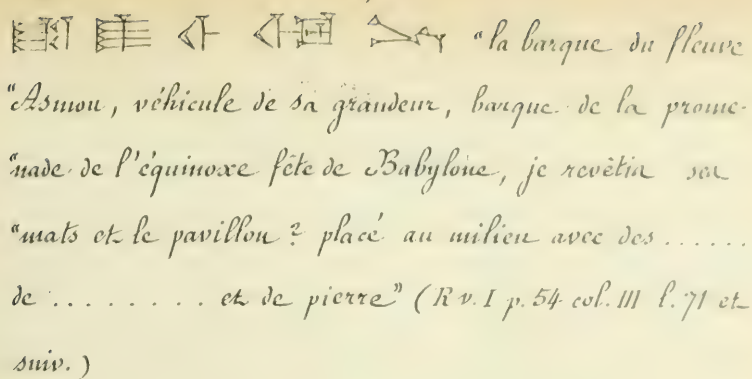 "la barque du fleuve
"Asmou, véhicule de sa grandeur, barque de la prome-
"nade de l'équinoxe fête de Babylone, je revêtis ses
"mats et le pavillon ? placé au milieu avec des ......
de ......... et de pierre" (R v. I p. 54 col. III l. 71 et
suiv.)